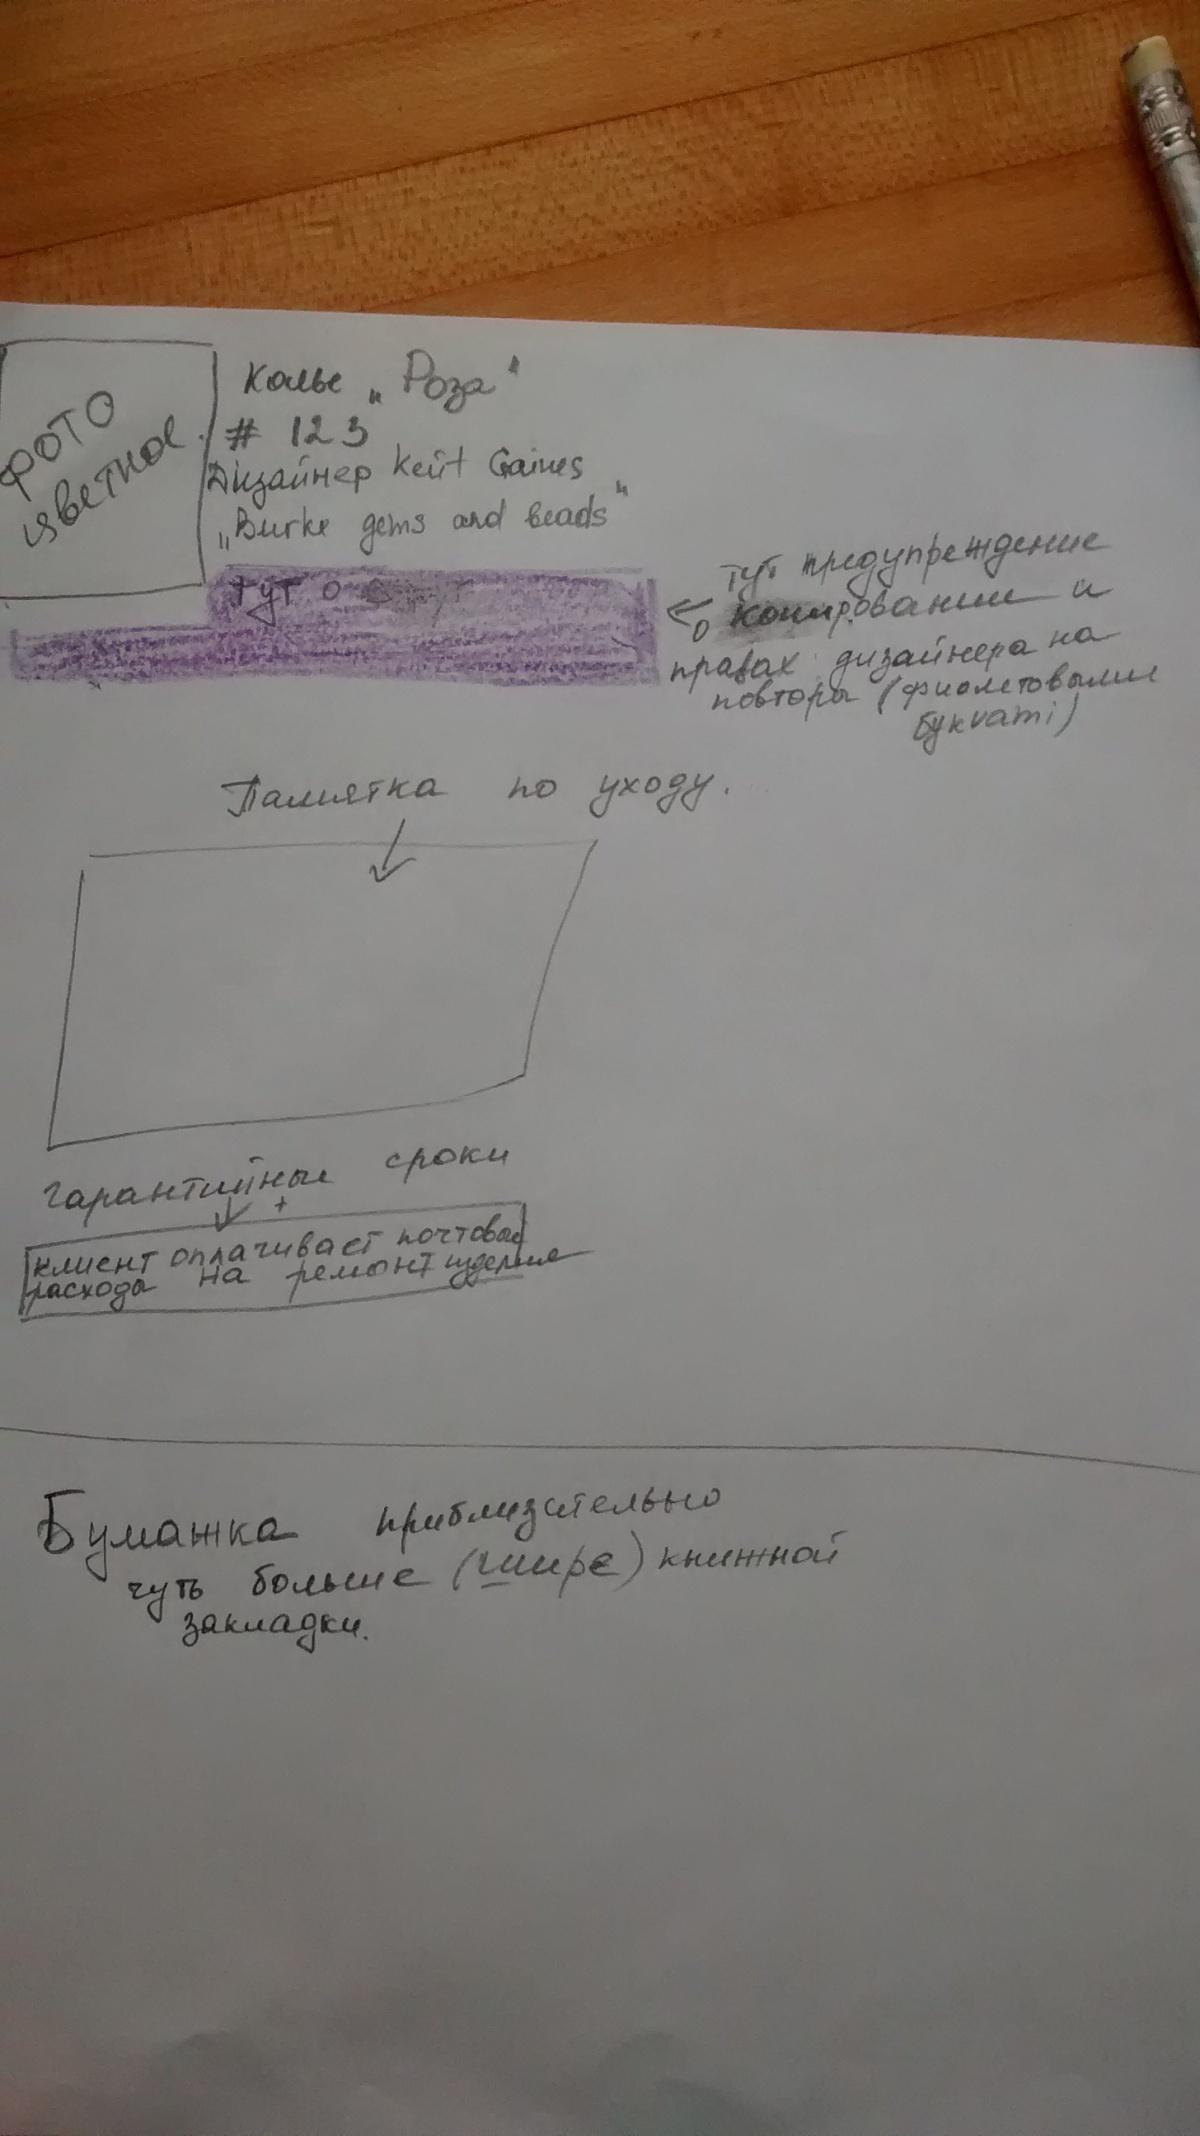 фото
цветное
Колье „Роза"
# 123
Дизайнер Кейт Gaines
„Burke gems and beads"
тут о
тут предупреждение
о копировании и
правах дизайнера на
повторы (фиолетовыми
буквami)
Памятка по уходу.
гарантийные сроки
+
клиент оплачивает почтовые
расходы на ремонт изделия
Бумажка приблизительно
чуть больше (шире) книжной
закладки.